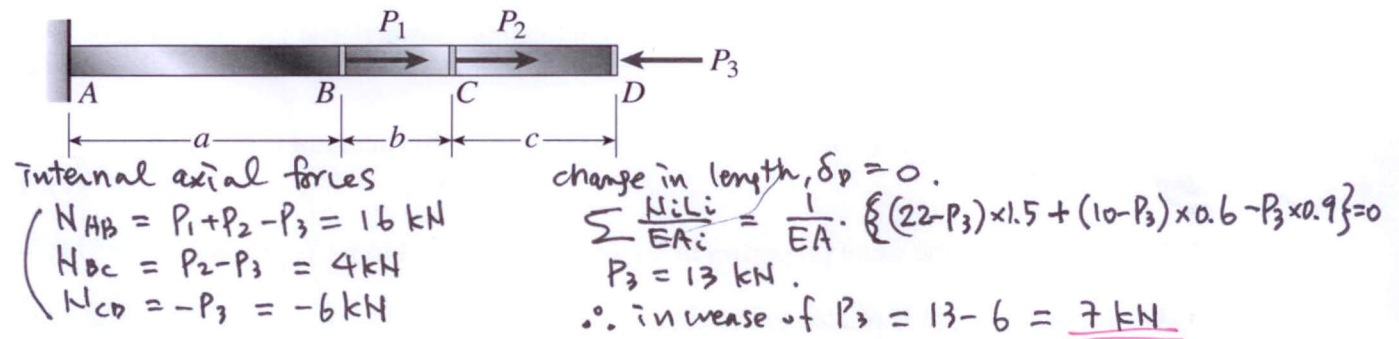 P₁ P₂
P₃
A B C D
a b c
internal axial forces
N_AB = P₁+P₂-P₃ = 16 kN
N_BC = P₂-P₃ = 4kN
N_CD = -P₃ = -6kN
change in length, δ_D = 0.
∑ NiLi/EAi = 1/EA · {(22-P₃)×1.5 + (10-P₃)×0.6 -P₃×0.9}=0
P₃ = 13 kN.
∴ increase of P₃ = 13-6 = 7 kN